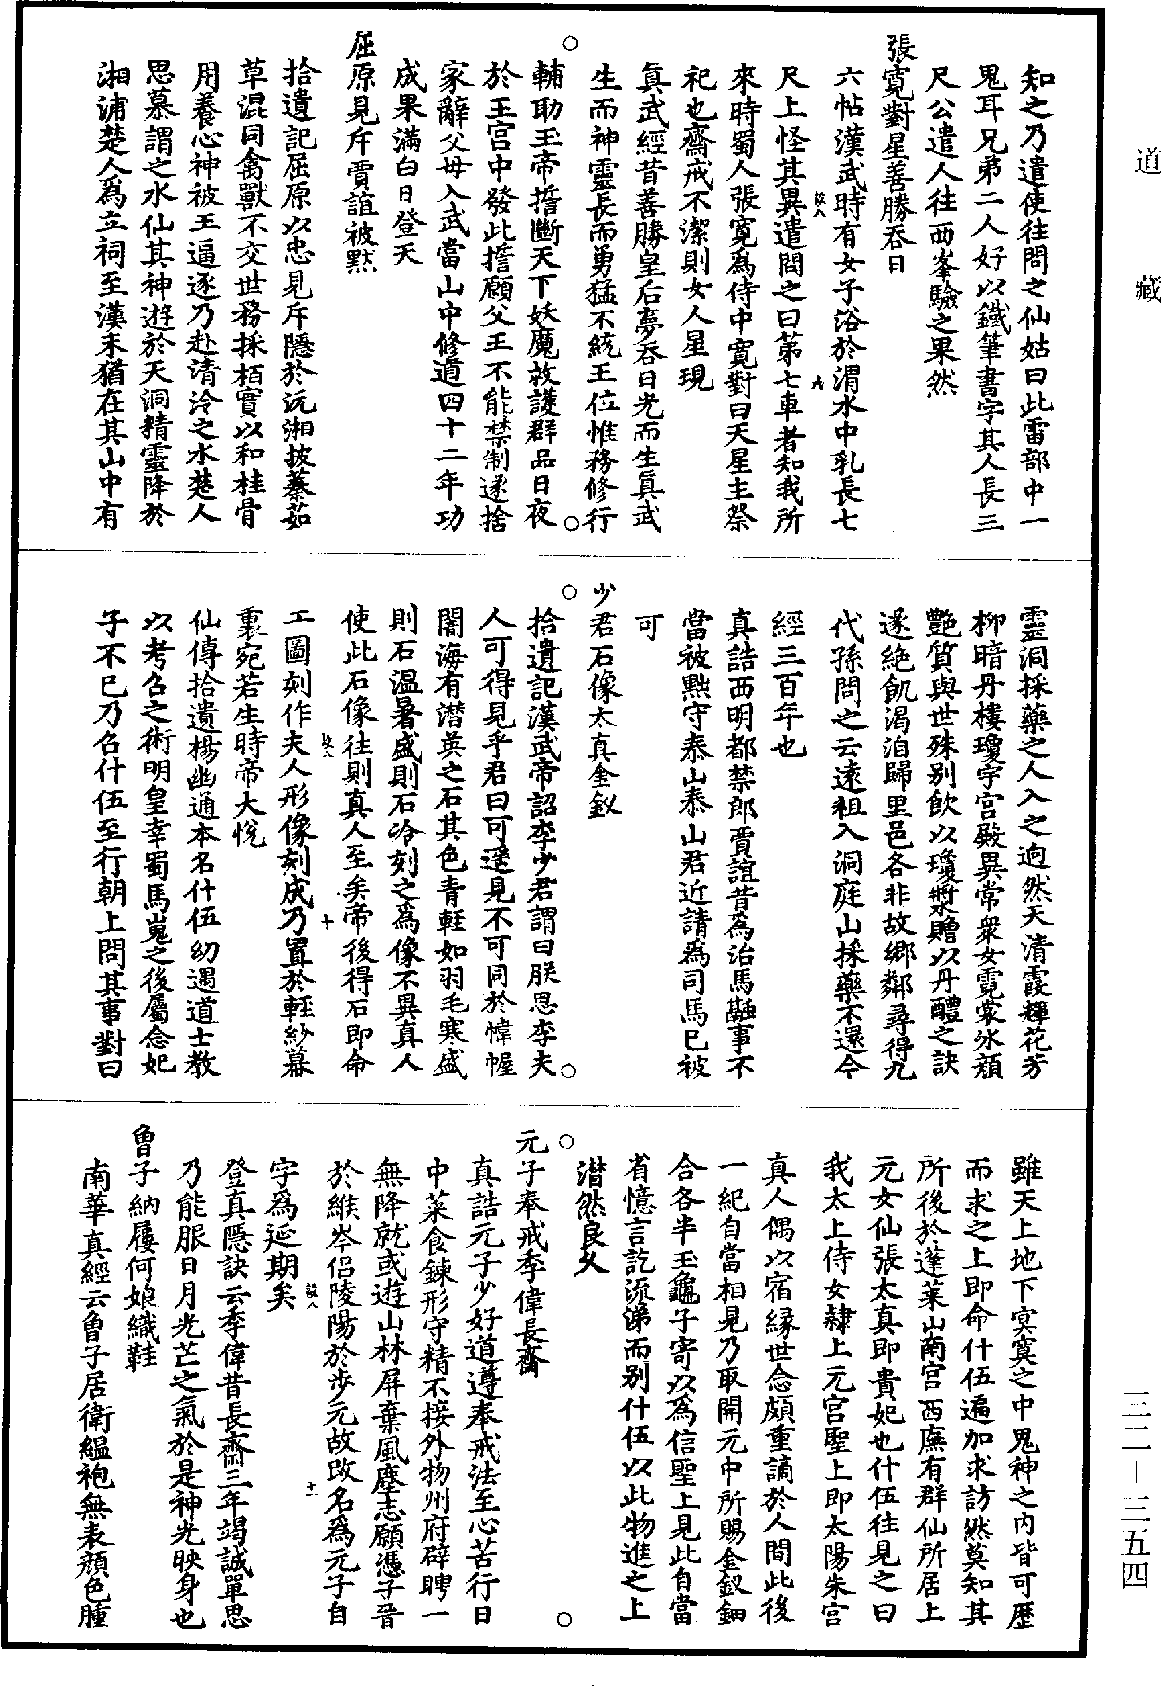 道藏
三二—三五四
知之乃遣使往問之仙姑曰此雷部中一
鬼耳兄弟二人好以鐵筆書字其人長三
尺公遣人往西峯驗之果然
張寬對星善勝吞日
六帖漢武時有女子浴於渭水中乳長七
尺上怪其異遣問之曰第七車者知我所
來時蜀人張寬為侍中寬對曰天星主祭
祀也齋戒不潔則女人星現
真武經昔善勝皇后夢吞日光而生真武
生而神靈長而勇猛不統王位惟務修行
輔助玉帝誓斷天下妖魔救護群品日夜
於王宮中發此誓願父王不能禁制遂捨
家辭父母入武當山中修道四十二年功
成果滿白日登天
屈原見斥賈誼被黙
拾遺記屈原以忠見斥隱於沅湘披蓁茹
草混同禽獸不交世務採栢實以和桂骨
用養心神被王逼逐乃赴清泠之水楚人
思慕謂之水仙其神遊於天洞精靈降於
湘浦楚人為立祠至漢末猶在其山中有
靈洞採藥之人入之逈然天清霞輝花芳
柳暗丹樓瓊宇宮殿異常衆女霓裳冰顏
艷質與世殊別飲以瓊漿贈以丹醴之訣
遂絶飢渴洎歸里邑各非故鄉鄰尋得九
代孫問之云遠祖入洞庭山採藥不還今
經三百年也
真誥西明都禁郎賈誼昔為治馬融事不
當被黜守泰山泰山君近請為司馬已被
可
少君石像太真金釵
拾遺記漢武帝詔李少君謂曰朕思李夫
人可得見乎君曰可遥見不可同於幃幄
闇海有潛英之石其色青輊如羽毛寒盛
則石溫暑盛則石冷刻之為像不異真人
使此石像往則真人至矣帝後得石即命
工圖刻作夫人形像刻成乃置於輊紗幕
裏宛若生時帝大悅
仙傳拾遺楊幽通本名什伍幼遇道士教
以考召之術明皇幸蜀馬嵬之後屬念妃
子不已乃召什伍至行朝上問其事對曰
雖天上地下冥寞之中鬼神之內皆可歷
而求之上即命什伍遍加求訪然莫知其
所後於蓬萊山南宮西廡有群仙所居上
元女仙張太真即貴妃也什伍往見之曰
我太上侍女隸上元宮聖上即太陽朱宮
真人偶以宿緣世念頗重謫於人間此後
一紀自當相見乃取開元中所賜金釵鈿
合各半玉龜子寄以為信聖上見此自當
省憶言訖流涕而別什伍以此物進之上
潜然良久
元子奉戒李偉長齋
真誥元子少好道遵奉戒法至心苦行日
中菜食鍊形守精不接外物州府辟聘一
無降就或遊山林屏棄風塵志願憑子晉
於緱岑侶陵陽於步元故改名為元子自
字為延期矣
登真隱訣云李偉昔長齋三年竭誠單思
乃能服日月光芒之氣於是神光映身也
曾子納屨何娘織鞋
南華真經云曾子居衛縕袍無表顏色腫